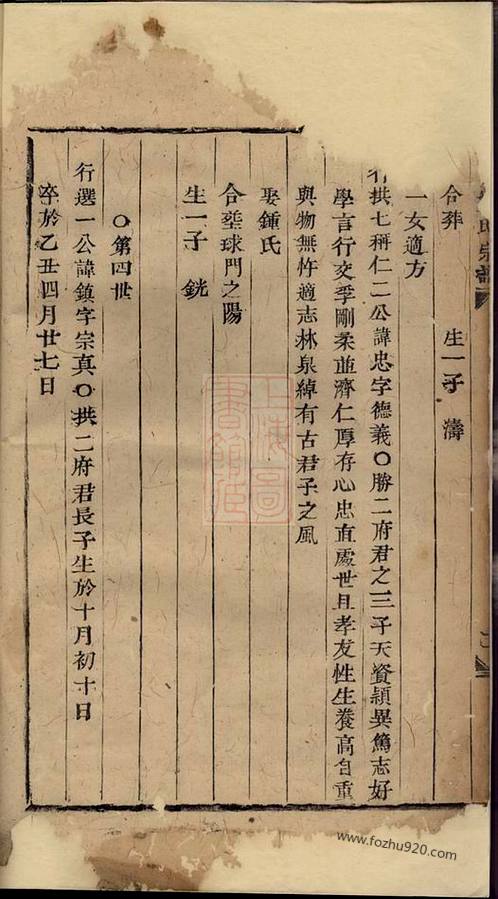 氏宗譜
合葬　　生一子　濤
一女適方
行拱七稱仁二公諱忠字德義○勝二府君之三子天資頴異篤志好
學言行交季剛柔並濟仁厚存心忠直處世且孝友性生養高自重
與物無忤適志林泉綽有古君子之風
娶鍾氏
合塟球門之陽
生一子　銑
○第四世
行選一公諱鎮字宗真○拱二府君長子生於十月初十日
卒於乙丑四月廿七日
上海圖書館藏
www.fozhu920.com